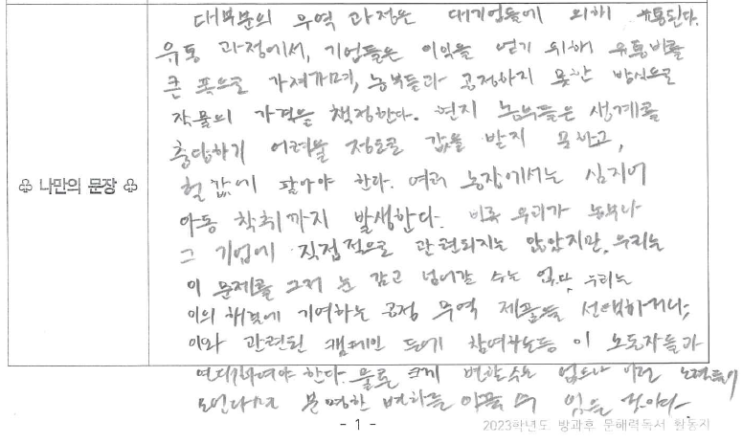 대부분의 무역 과정은 대기업들에 의해 유통된다.
유통 과정에서, 기업들은 이익을 얻기 위해 유통비를
큰 폭으로 가져가며, 농부들과 공정하지 못한 방식으로
작물의 가격을 책정한다. 현지 농부들은 생계를
충당하기 어려울 정도로 값을 받지 못하고,
♧ 나만의 문장 ♧
헐값에 팔아야 한다. 여러 농장에서는 심지어
아동 착취까지 발생한다. 비록 우리가 농부나
그 기업에 직접적으로 관련되지는 않았지만, 우리는
이 문제를 그저 눈 감고 넘어갈 수는 없다. 우리는
이의 해결에 기여하는 공정 무역 제품을 선택하거나,
이와 관련된 캠페인 등에 참여하는등 이 노동자들과
연대하여야 한다. 물론 크게 변할수는 없으나 이런 노력들이
모인다면 분명한 변화를 이끌 수 있을 것이다.
- 1 -
2023학년도 방과후 문해력독서 활동지